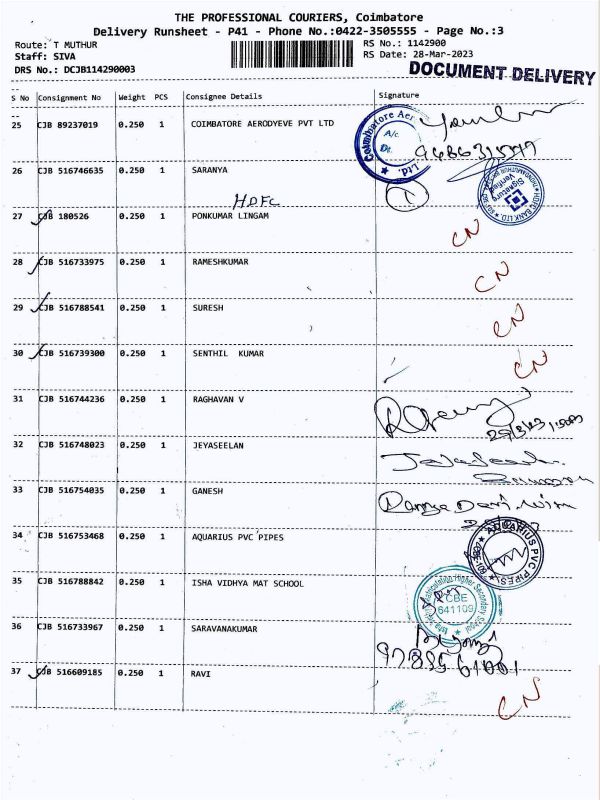 THE PROFESSIONAL COURIERS, Coimbatore
Delivery Runsheet - P41 - Phone No.:0422-3505555 - Page No.:3
Route: T MUTHUR
RS No.: 1142900
Staff: SIVA
RS Date: 28-Mar-2023
DRS No.: DCJB114290003
DOCUMENT DELIVERY
S No Consignment No Weight PCS Consignee Details Signature
25 CJB 89237019 0.250 1 COIMBATORE AERODYEVE PVT LTD
Coimbatore Aer
A/c.
Ltd.
26 CJB 516746635 0.250 1 SARANYA
HDFC
HDFC BANK LTD
Signature
Verified
27 CJB 180526 0.250 1 PONKUMAR LINGAM CN
28 CJB 516733975 0.250 1 RAMESHKUMAR CN
29 CJB 516788541 0.250 1 SURESH CN
30 CJB 516739300 0.250 1 SENTHIL KUMAR CN
31 CJB 516744236 0.250 1 RAGHAVAN V
32 CJB 516748023 0.250 1 JEYASEELAN
33 CJB 516754035 0.250 1 GANESH
34 CJB 516753468 0.250 1 AQUARIUS PVC PIPES
AQUARIUS PVC PIPES
35 CJB 516788842 0.250 1 ISHA VIDHYA MAT SCHOOL
Matriculation Higher Secondary School
CBE
641109
36 CJB 516733967 0.250 1 SARAVANAKUMAR
37 CJB 516609185 0.250 1 RAVI CN